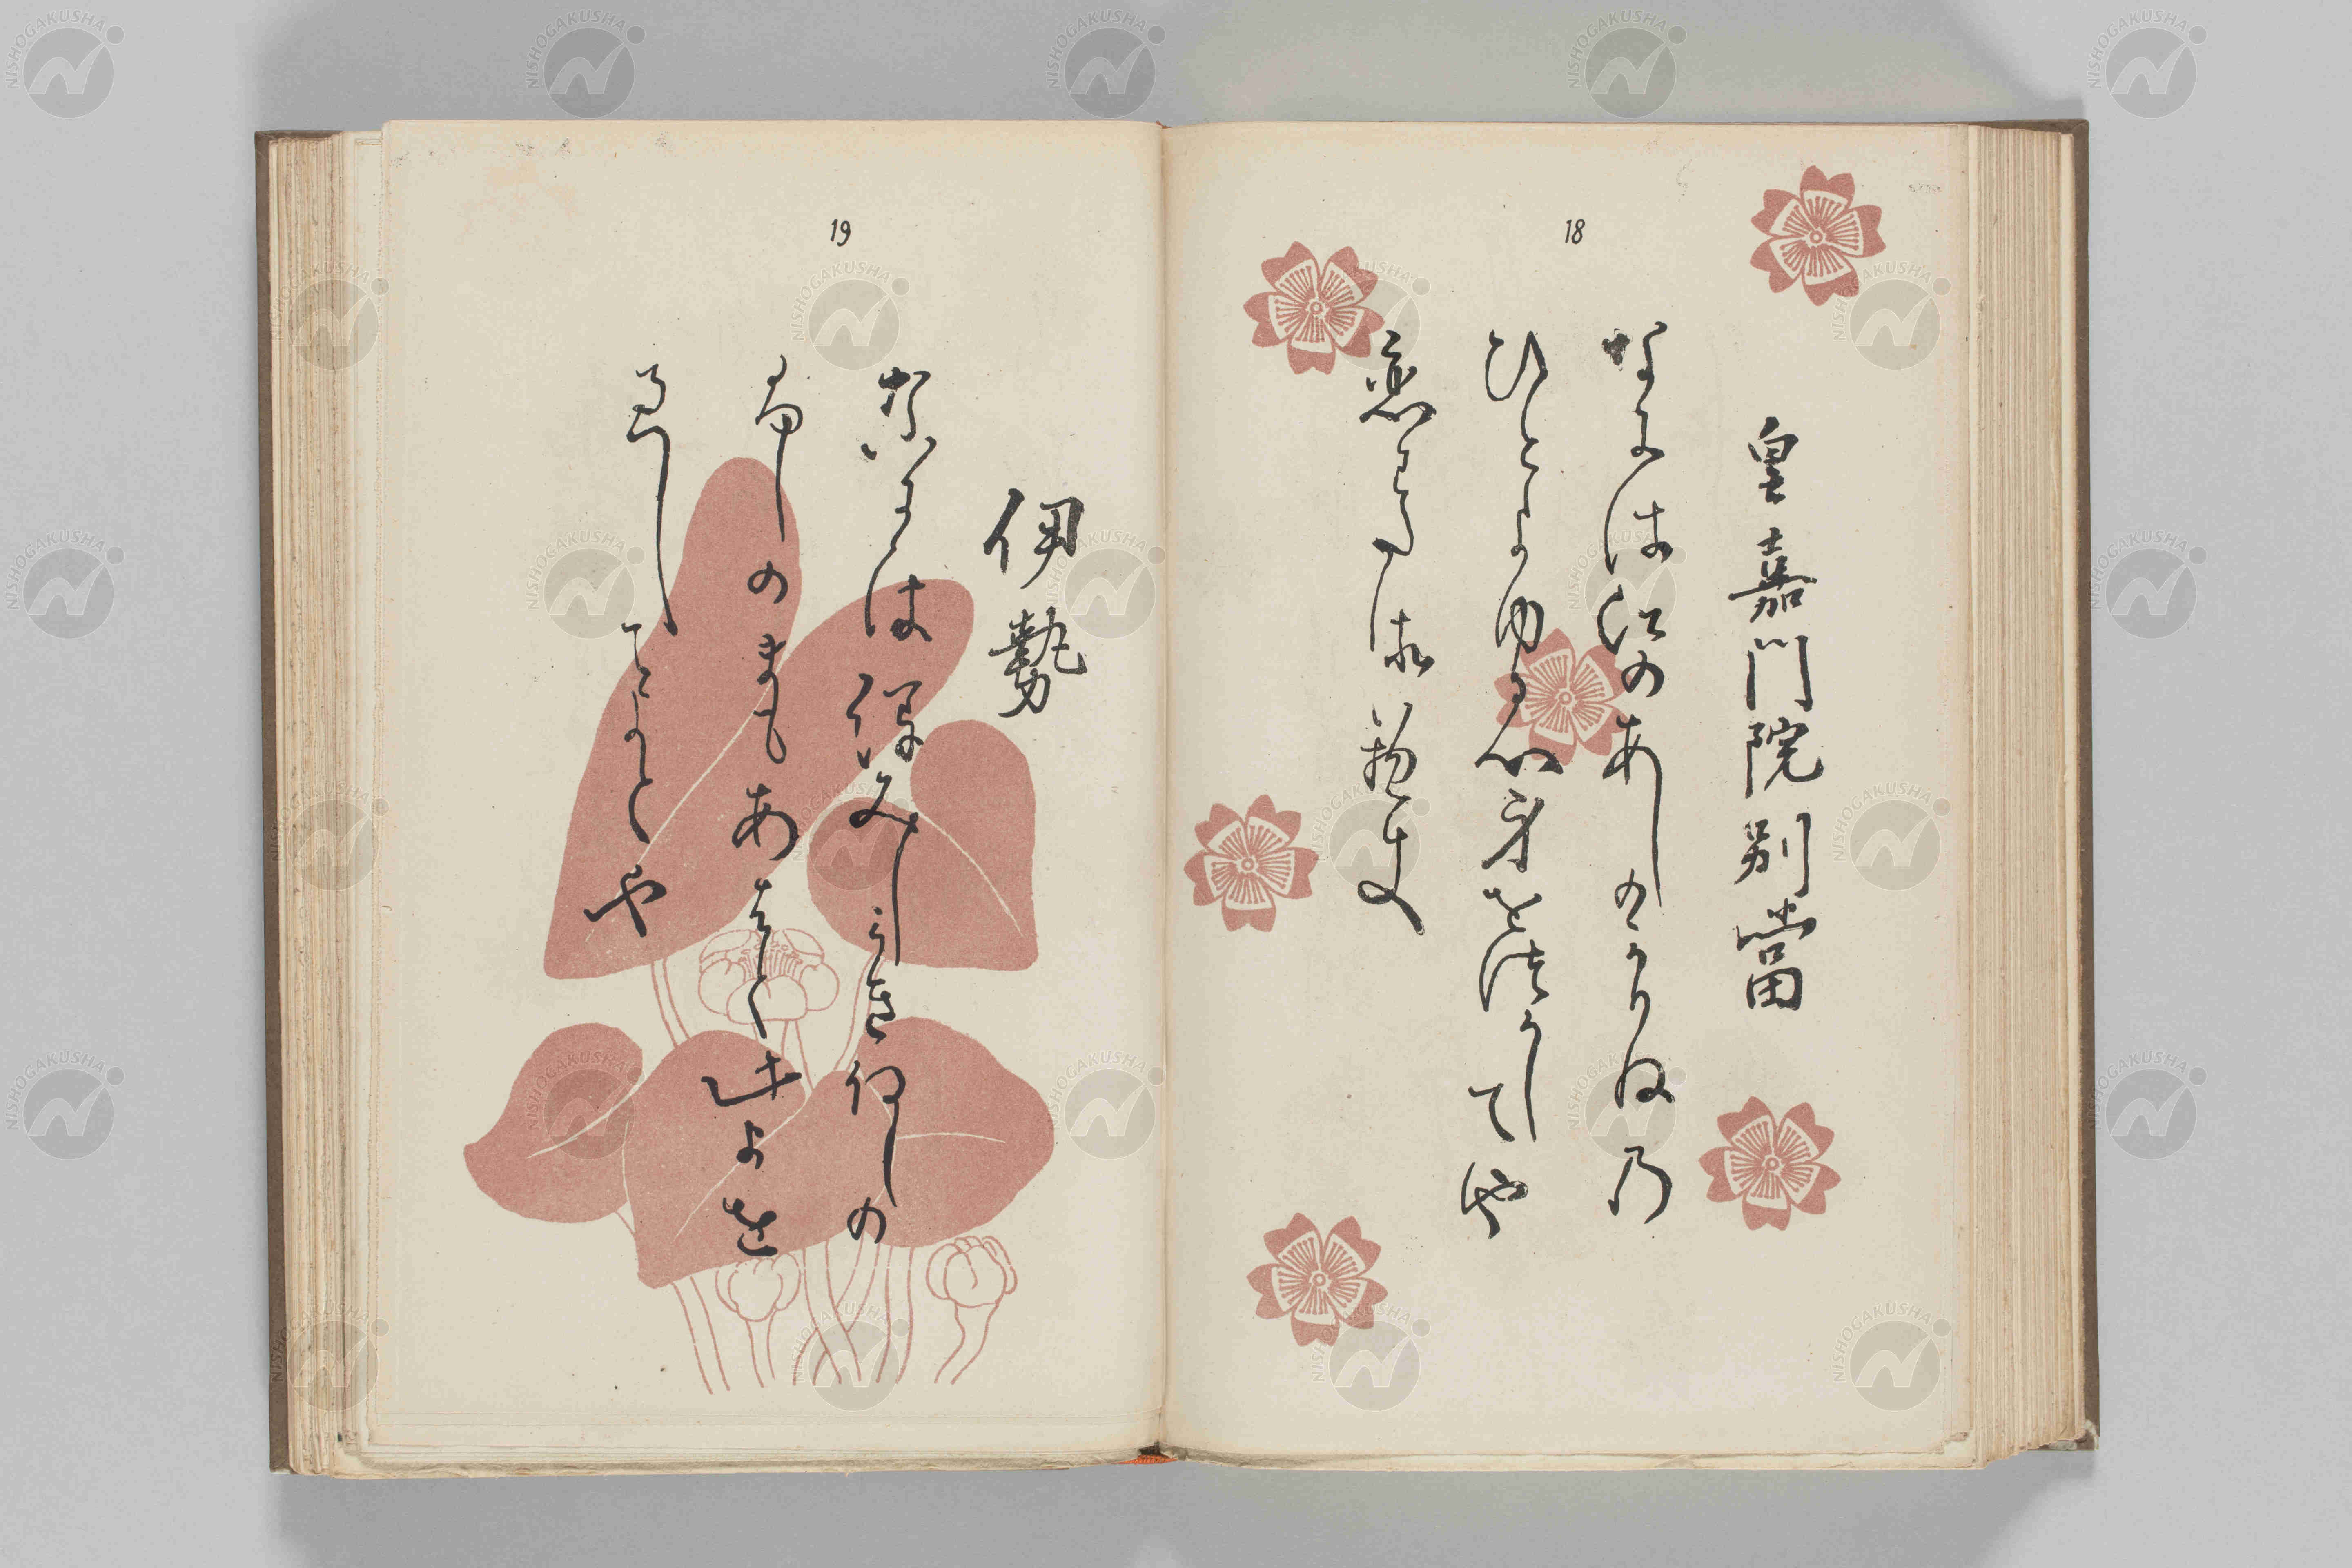 18
皇嘉門院別當
なには江のあしのかりね乃
ひとよゆゑ身をつくしてや
恋わたるへき
19
伊勢
なにはかたみしかきあしの
ふしのまもあはて此よを
すくしてよとや
NISHOGAKUSHA